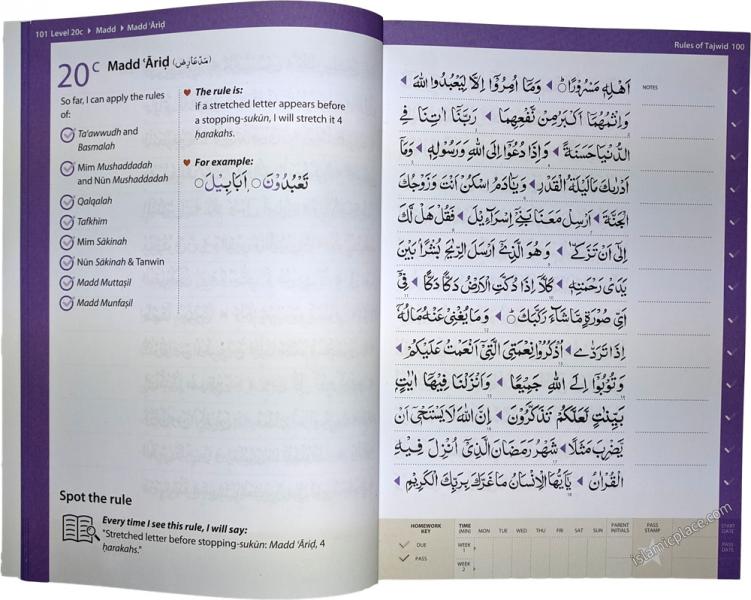 101 Level 20c ▸ Madd ▸ Madd ʿĀriḍ
20c Madd ʿĀriḍ (مَدّ عَارِض)
So far, I can apply the rules of:
Ta'awwudh and Basmalah
Mim Mushaddadah and Nūn Mushaddadah
Qalqalah
Tafkhim
Mim Sākinah
Nūn Sākinah & Tanwin
Madd Muttaṣil
Madd Munfaṣil
The rule is:
if a stretched letter appears before
a stopping-sukūn, I will stretch it 4
ḥarakahs.
For example:
تَعْبُدُوْنَ ۝ اَبَابِيْلَ ۝
Spot the rule
Every time I see this rule, I will say:
"Stretched letter before stopping-sukūn: Madd ʿĀriḍ, 4
ḥarakahs."
Rules of Tajwid 100
NOTES
اَهْلِهٖ مَسْرُوْرًا ۝ وَمَآ اُمِرُوْٓا اِلَّا لِيَعْبُدُوا اللهَ
وَاِثْمُهُمَآ اَكْبَرُ مِنْ نَّفْعِهِمَا رَبَّنَآ اٰتِنَا فِي
الدُّنْيَا حَسَنَةً وَاِذَا دُعُوْٓا اِلَى اللهِ وَرَسُوْلِهٖ وَمَآ
اَدْرٰىكَ مَا لَيْلَةُ الْقَدْرِ وَيٰٓاٰدَمُ اسْكُنْ اَنْتَ وَزَوْجُكَ
الْجَنَّةَ اَرْسِلْ مَعَنَا بَنِيْٓ اِسْرَآءِيْلَ فَقُلْ هَلْ لَّكَ
اِلٰٓى اَنْ تَزَكّٰى وَهُوَ الَّذِيْٓ اَرْسَلَ الرِّيٰحَ بُشْرًا بَيْنَ
يَدَيْ رَحْمَتِهٖ كَلَّآ اِذَا دُكَّتِ الْاَرْضُ دَكًّا دَكًّا فِيْٓ
اَيِّ صُوْرَةٍ مَّا شَآءَ رَكَّبَكَ ۝ وَمَا يُغْنِيْ عَنْهُ مَالُهٗٓ
اِذَا تَرَدّٰى اذْكُرُوْا نِعْمَتِيَ الَّتِيْٓ اَنْعَمْتُ عَلَيْكُمْ
وَتُوْبُوْٓا اِلَى اللهِ جَمِيْعًا وَاَنْزَلْنَا فِيْهَآ اٰيٰتٍ
بَيِّنٰتٍ لَّعَلَّكُمْ تَذَكَّرُوْنَ اِنَّ اللهَ لَا يَسْتَحْيٖٓ اَنْ
يَّضْرِبَ مَثَلًا شَهْرُ رَمَضَانَ الَّذِيْٓ اُنْزِلَ فِيْهِ
الْقُرْاٰنُ يٰٓاَيُّهَا الْاِنْسَانُ مَا غَرَّكَ بِرَبِّكَ الْكَرِيْمِ
HOMEWORK KEY TIME (MIN) MON TUE WED THU FRI SAT SUN PARENT INITIALS PASS STAMP START DATE
DUE WEEK 1 PASS DATE
PASS WEEK 2
islamicplace.com